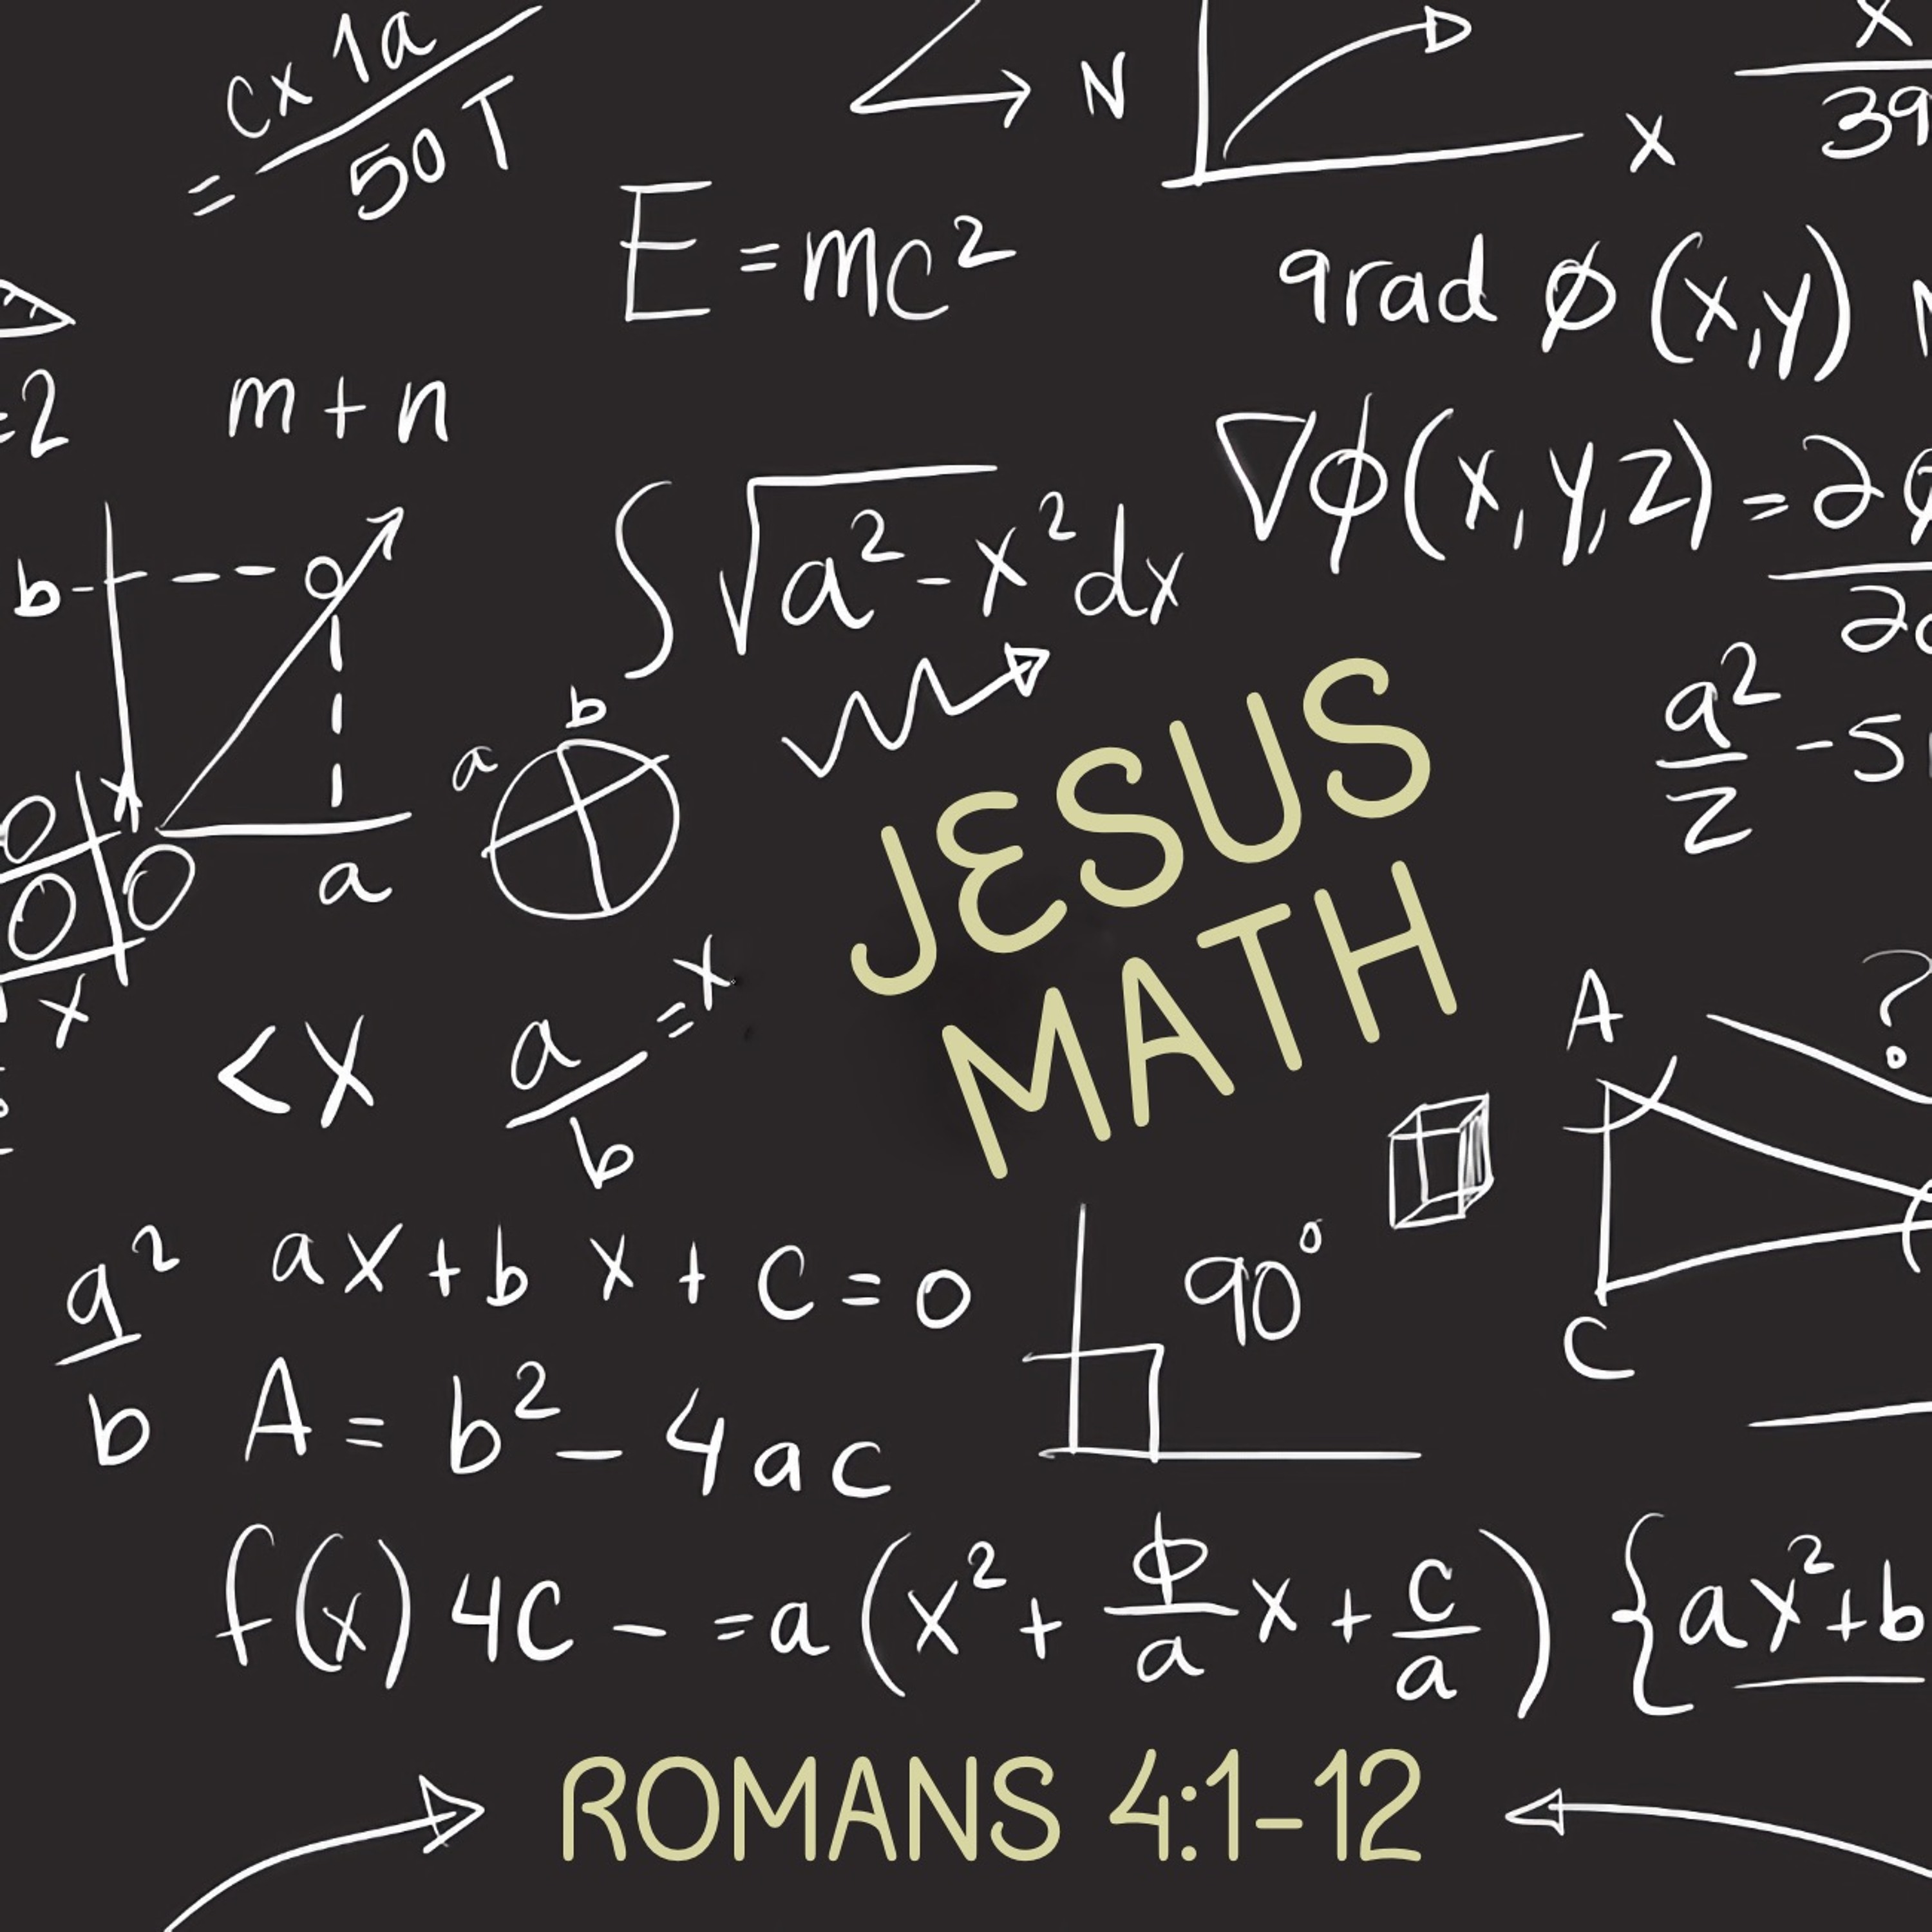 = cx 1a / 50 T
N
x
x / 39
E = mc²
grad ϕ (x,y)
=2
m + n
∇ϕ(x,y,z) = ∂ϕ
∫ √a² - x² dx
b
a
b
a
a² / z - 5
JESUS
MATH
x
<x
a / b = x
A
?
C
a² / b
ax + b x + c = 0
90°
A = b² - 4ac
f(x) 4c - = a(x² + ϕ/a x + c/a) {ax² + b
ROMANS 4:1-12